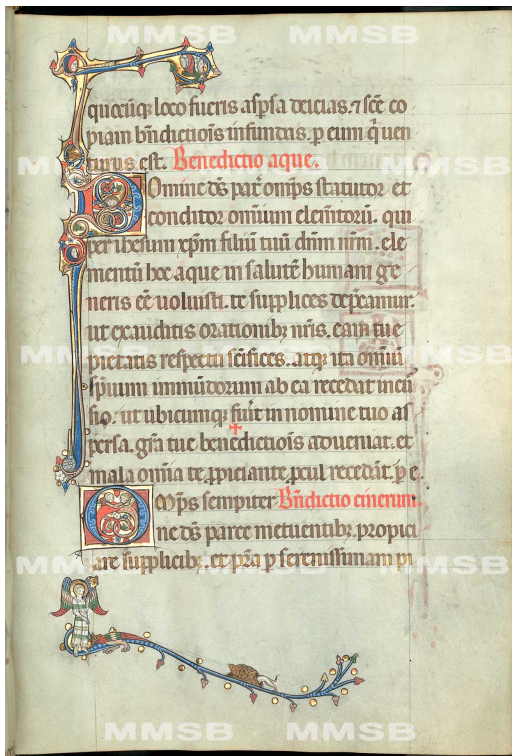 quocūqꝫ loco fueris aspsa deicias. ⁊ scē co
piam bn̄dictiōis infundas. p eum q̇ uen
turus est. Benedictio aque.
Domine ds̄ pat̄ omīps statutor et
conditor omīum elemētorū. qui
per ihesum xp̄m filiū tuū dn̄m nr̄m. ele
mentū hoc aque in salutē humani ge
neris eē uoluisti. te supplices dep̄camur.
ut exauditis orationibꝫ nr̄is. eam tue
pietatis respectu scīfices. atqꝫ ita omīū
spirituum inmūdorum ab ea recedat incur
sio. ut ubicumqꝫ fūit in nomine tuo as
persa. gr̄a tue bene✝dictiōis adueniat. et
mala omīa te ꝓpiciante ꝓcul recedāt. p e
Omīps sempiter Bn̄dictio cinerum.
ne ds̄ parce metuentibꝫ. propici
are supplicibꝫ. et